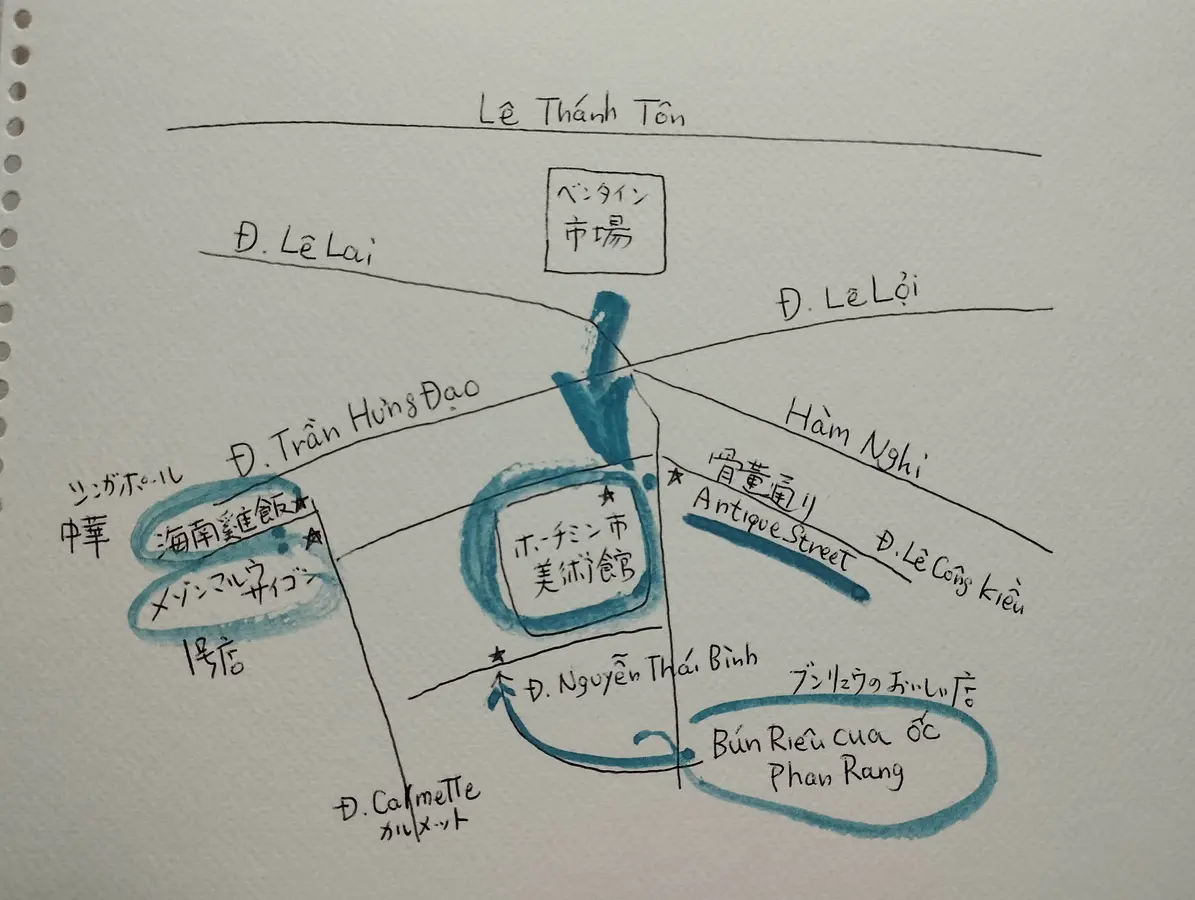 Lê Thánh Tôn
ベンタイン
市場
Đ. Lê Lai
Đ. Lê Lợi
Đ. Trần Hưng Đạo
Hàm Nghi
シンガポール
中華
海南雞飯
メゾンマルウ
サイゴン
1号店
ホーチミン市
美術館
骨董通り
Antique Street
Đ. Lê Công Kiều
Đ. Nguyễn Thái Bình
ブンリュウのおいしい店
Bún Riêu cua ốc
Phan Rang
Đ. Calmette
カルメット